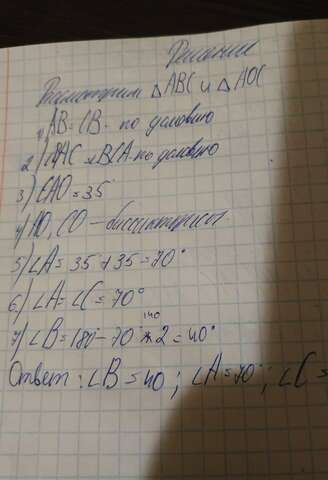 Решение
Рассмотрим △ABC и △AOC
1) AB=CB - по условию
2) ∠BAC и BCA - по условию
3) CAO=35°
4) AO, CO - биссектрисы
5) ∠A=35°+35=70°
6) ∠A=∠C=70°
140
7) ∠B=180-70*2=40°
Ответ: ∠B=40; ∠A=70°; ∠C=